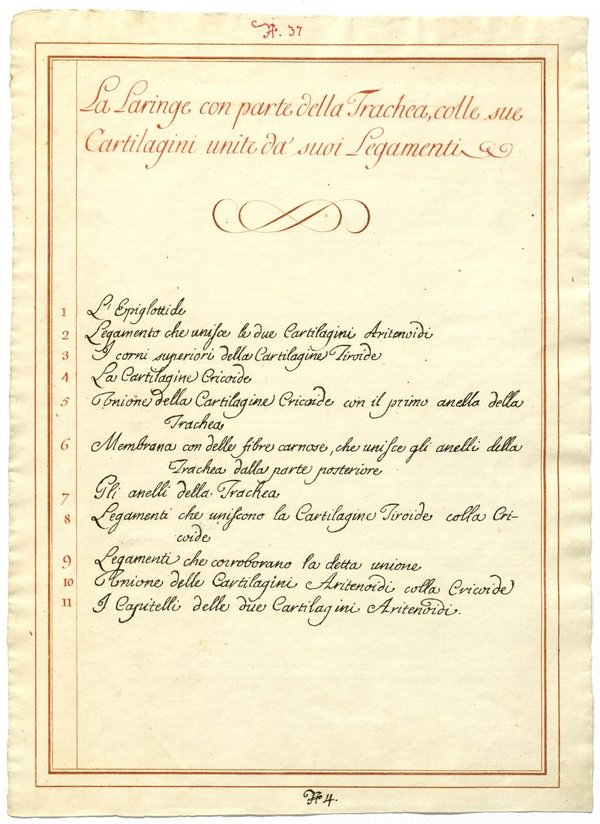 N. 37
La Laringe con parte della Trachea, colle sue
Cartilagini unite da' suoi Legamenti
1 L'Epiglottide
2 Legamento che unisce le due Cartilagini Aritenoidi
3 I corni superiori della Cartilagine Tiroide
4 La Cartilagine Cricoide
5 Unione della Cartilagine Cricoide con il primo anella della
Trachea
6 Membrana con delle fibre carnose, che unisce gli anelli della
Trachea dalla parte posteriore
7 Gli anelli della Trachea
8 Legamenti che uniscono la Cartilagine Tiroide colla Cri-
coide
9 Legamenti che corroborano la detta unione
10 Unione delle Cartilagini Aritenoidi colla Cricoide
11 I Capitelli delle due Cartilagini Aritenoidi.
N. 4.